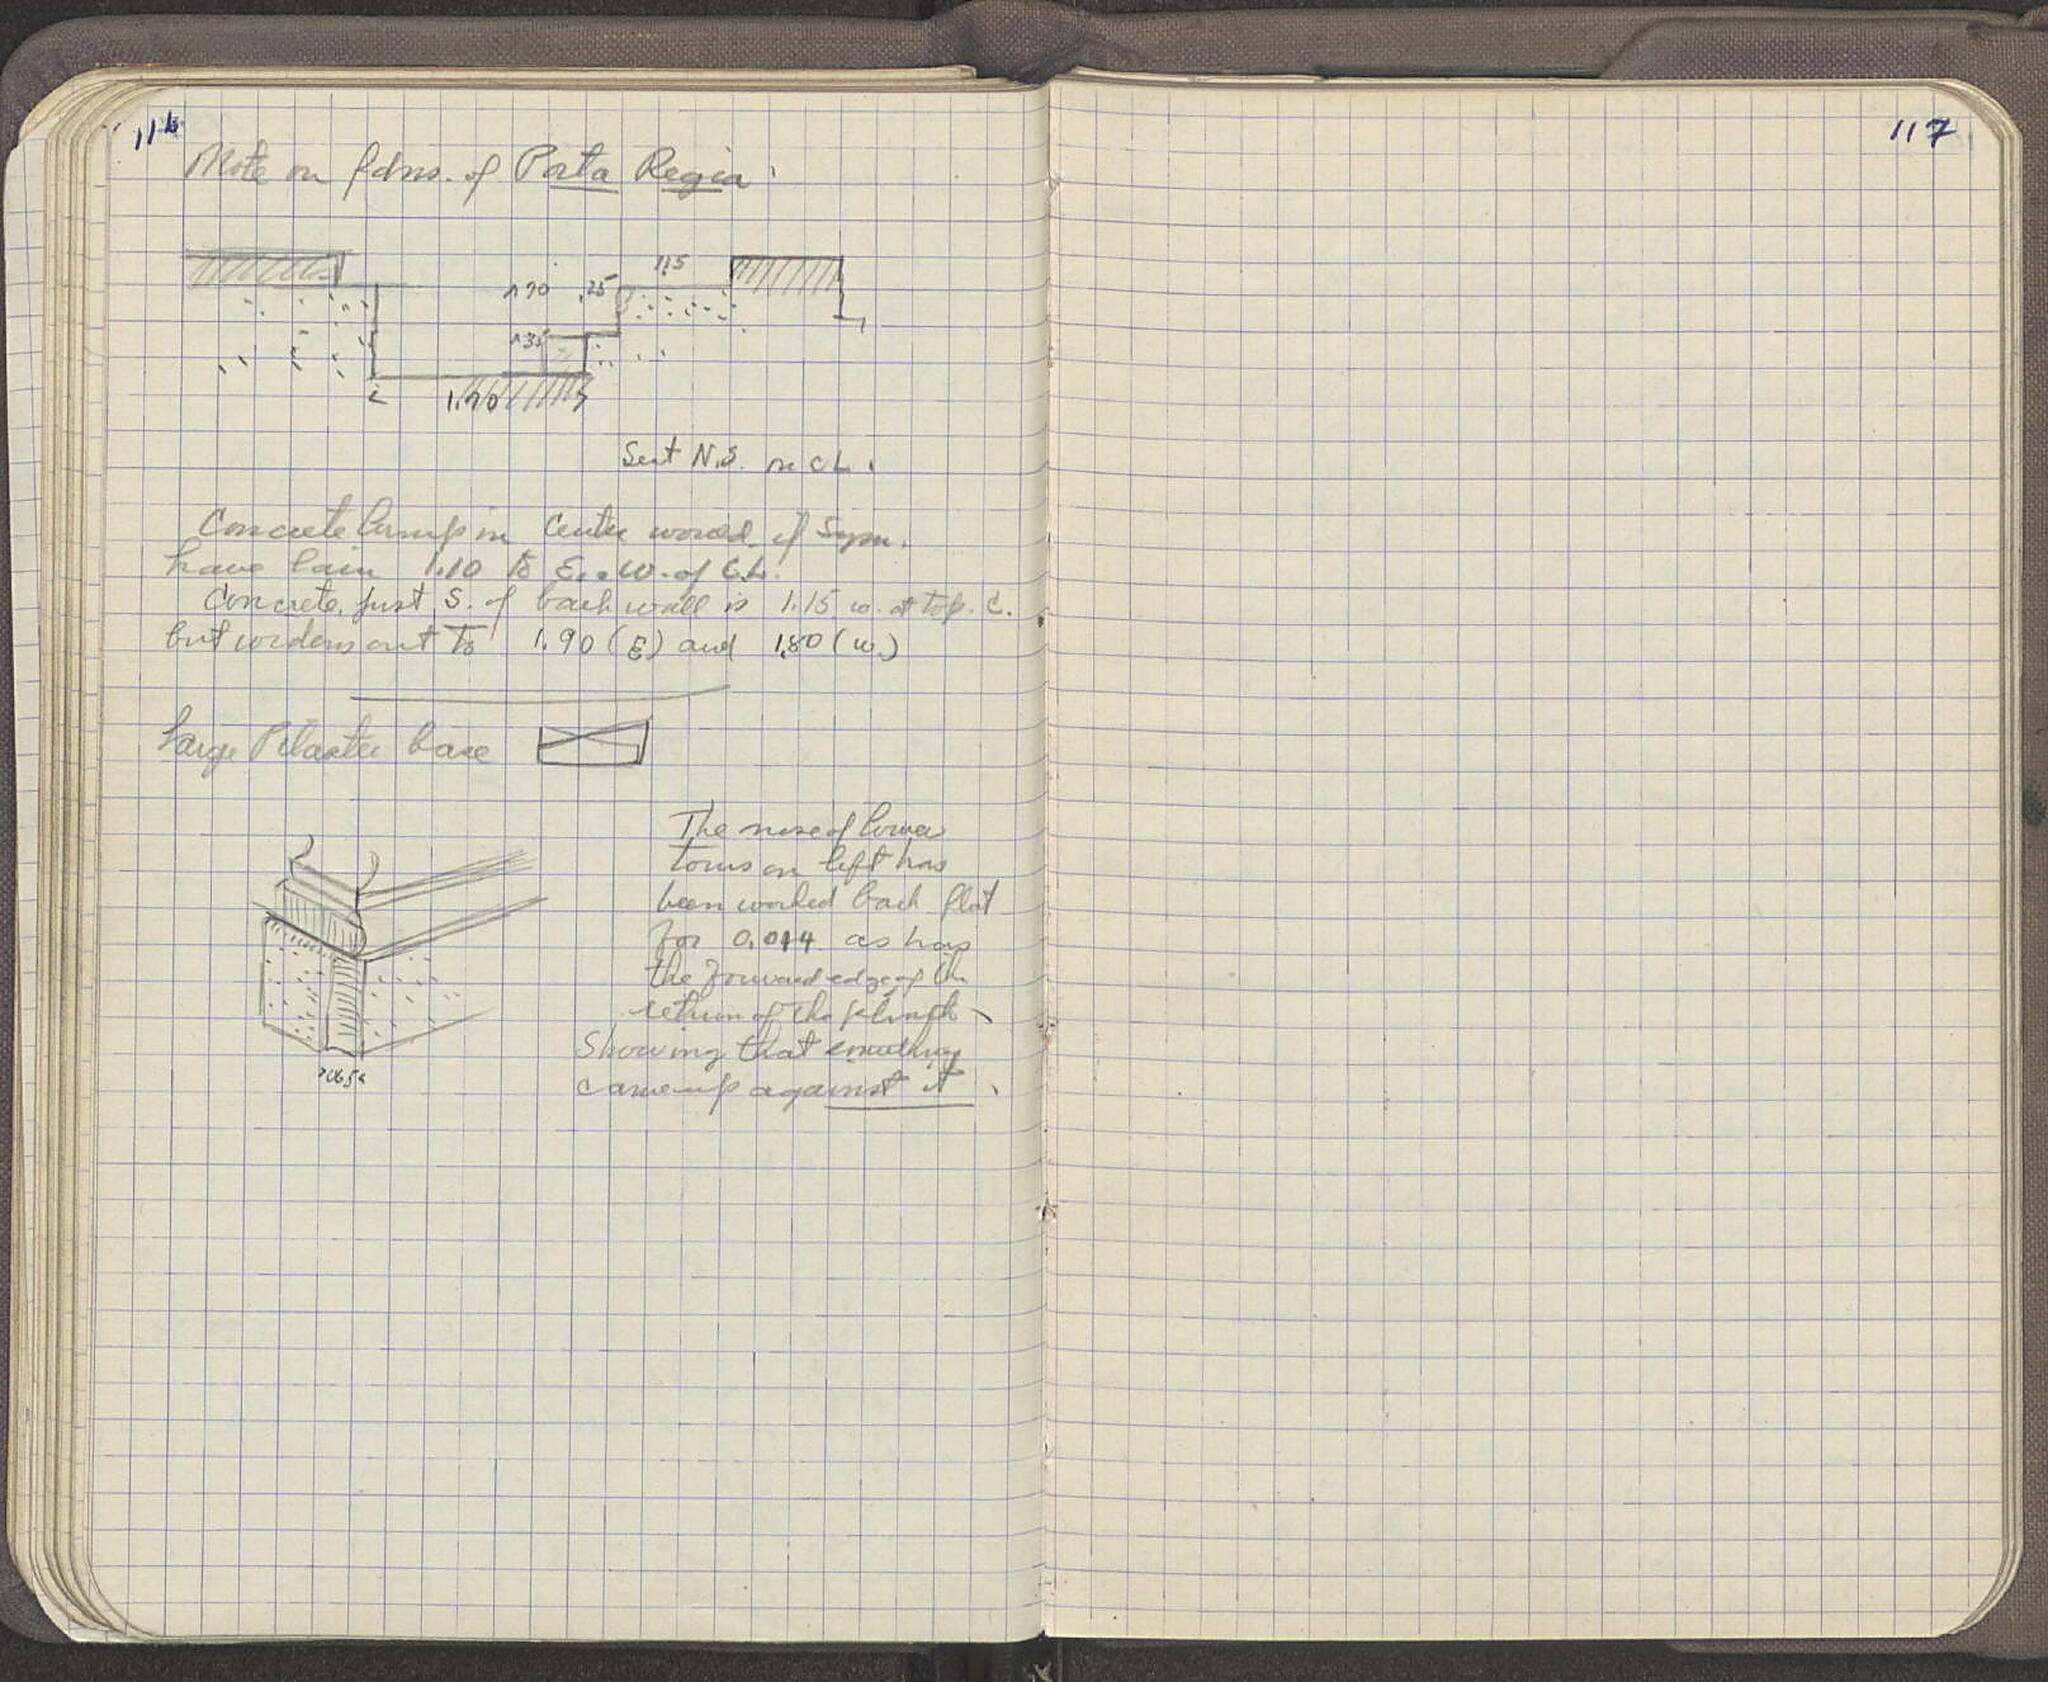 116
Note on fdns. of Porta Regia.
1.15
.25
.35
1.70
Sect N.S. on CL.
Concrete lump in center would if Sym.
have lain 1.10 to E. & W. of C.L.
Concrete just S. of back wall is 1.15 w. at top. C.
but widens out to 1.90 (E) and 1.80 (w.)
Large Pilaster base
The nose of lower
torus on left has
been worked back flat
for 0.014 as has
the forward edge of the
return of the plinth
Showing that something
came up against it.
.065
117